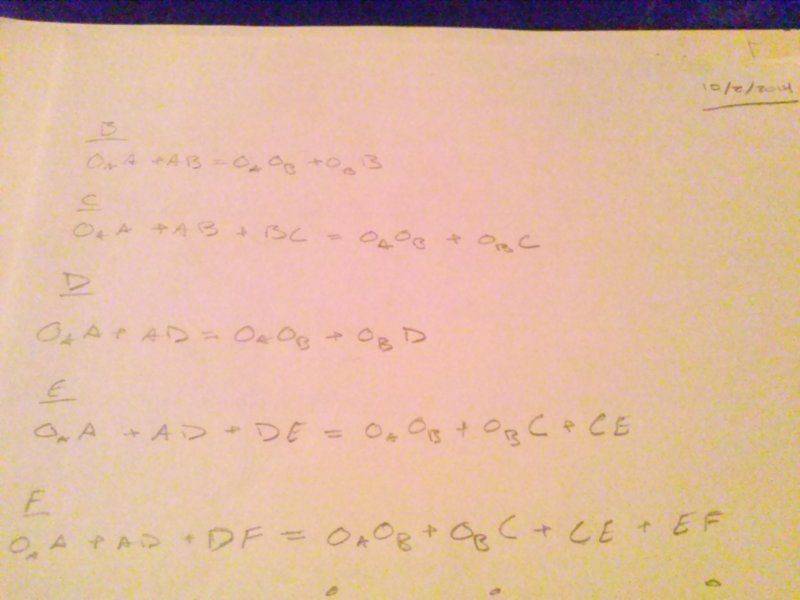 10/2/2014
B
O_A A + AB = O_A O_B + O_B B
C
O_A A + AB + BC = O_A O_B + O_B C
D
O_A A + AD = O_A O_B + O_B D
E
O_A A + AD + DE = O_A O_B + O_B C + CE
F
O_A A + AD + DF = O_A O_B + O_B C + CE + EF